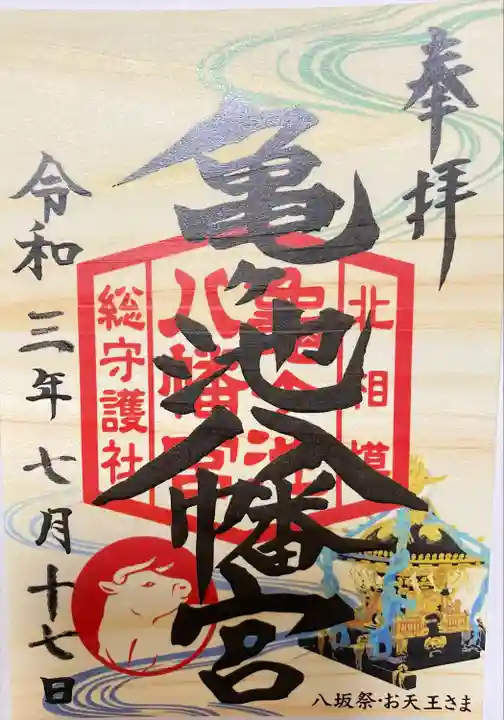 奉拝
亀ヶ池八幡宮
北相模
亀ヶ池
八幡宮
総守護社
令和三年七月十七日
八坂祭・お天王さま